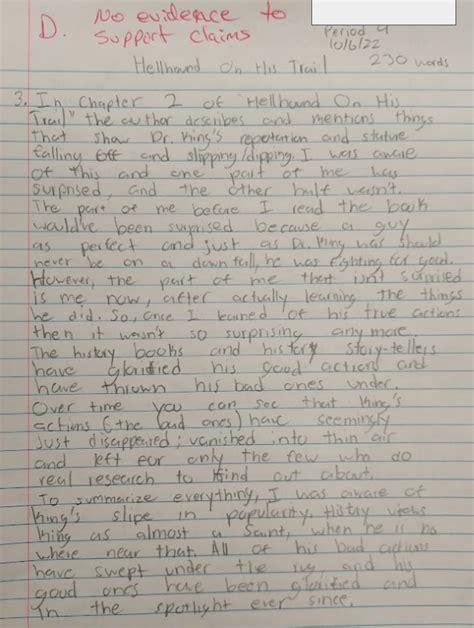 D. No evidence to
support claims
Period 4
10/6/22
Hellhound On His Trail 230 words
3. In Chapter 2 of "Hellhound On His
Trail" the author describes and mentions things
that show Dr. King's reputation and stature
falling off and slipping/dipping. I was aware
of this and one part of me was
surprised, and the other half wasn't.
The part of me before I read the book
would've been surprised because a guy
as perfect and just as Dr. King was should
never be on a down fall, he was fighting for good.
However, the part of me that isnt surprised
is me now, after actually learning the things
he did. So, once I learned of his true actions
then it wasn't so surprising any more.
The history books and history story-tellers
have glorified his good action and
have thrown his bad ones under.
Over time you can see that King's
actions (the bad ones) have seemingly
just disappeared; vanished into thin air
and left for only the few who do
real research to find out about.
To summarize everything, I was aware of
King's slipe in popularity. History views
King as almost a Saint, when he is no
where near that. All of his bad actions
have swept under the rug and his
good ones have been glorified and
in the spotlight ever since.